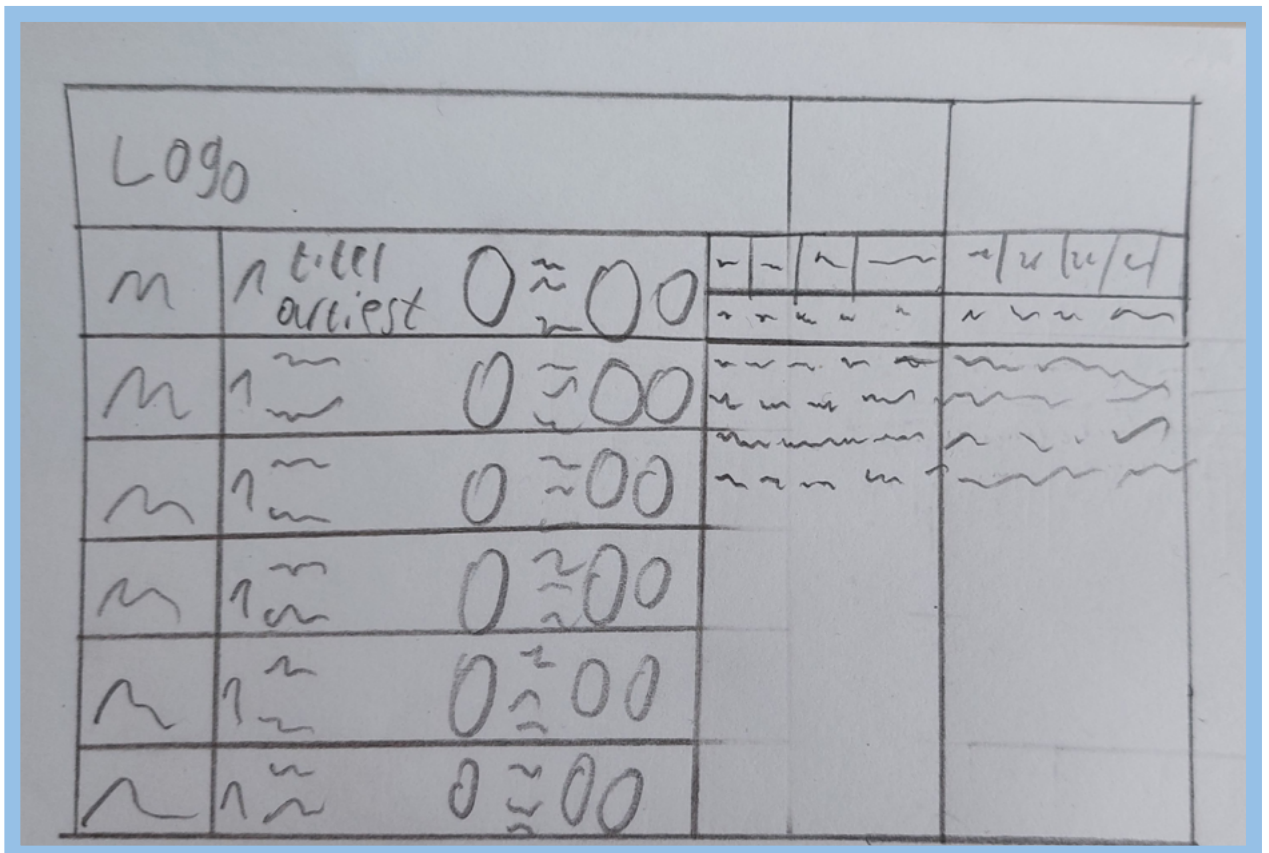 Logo
titel
artiest